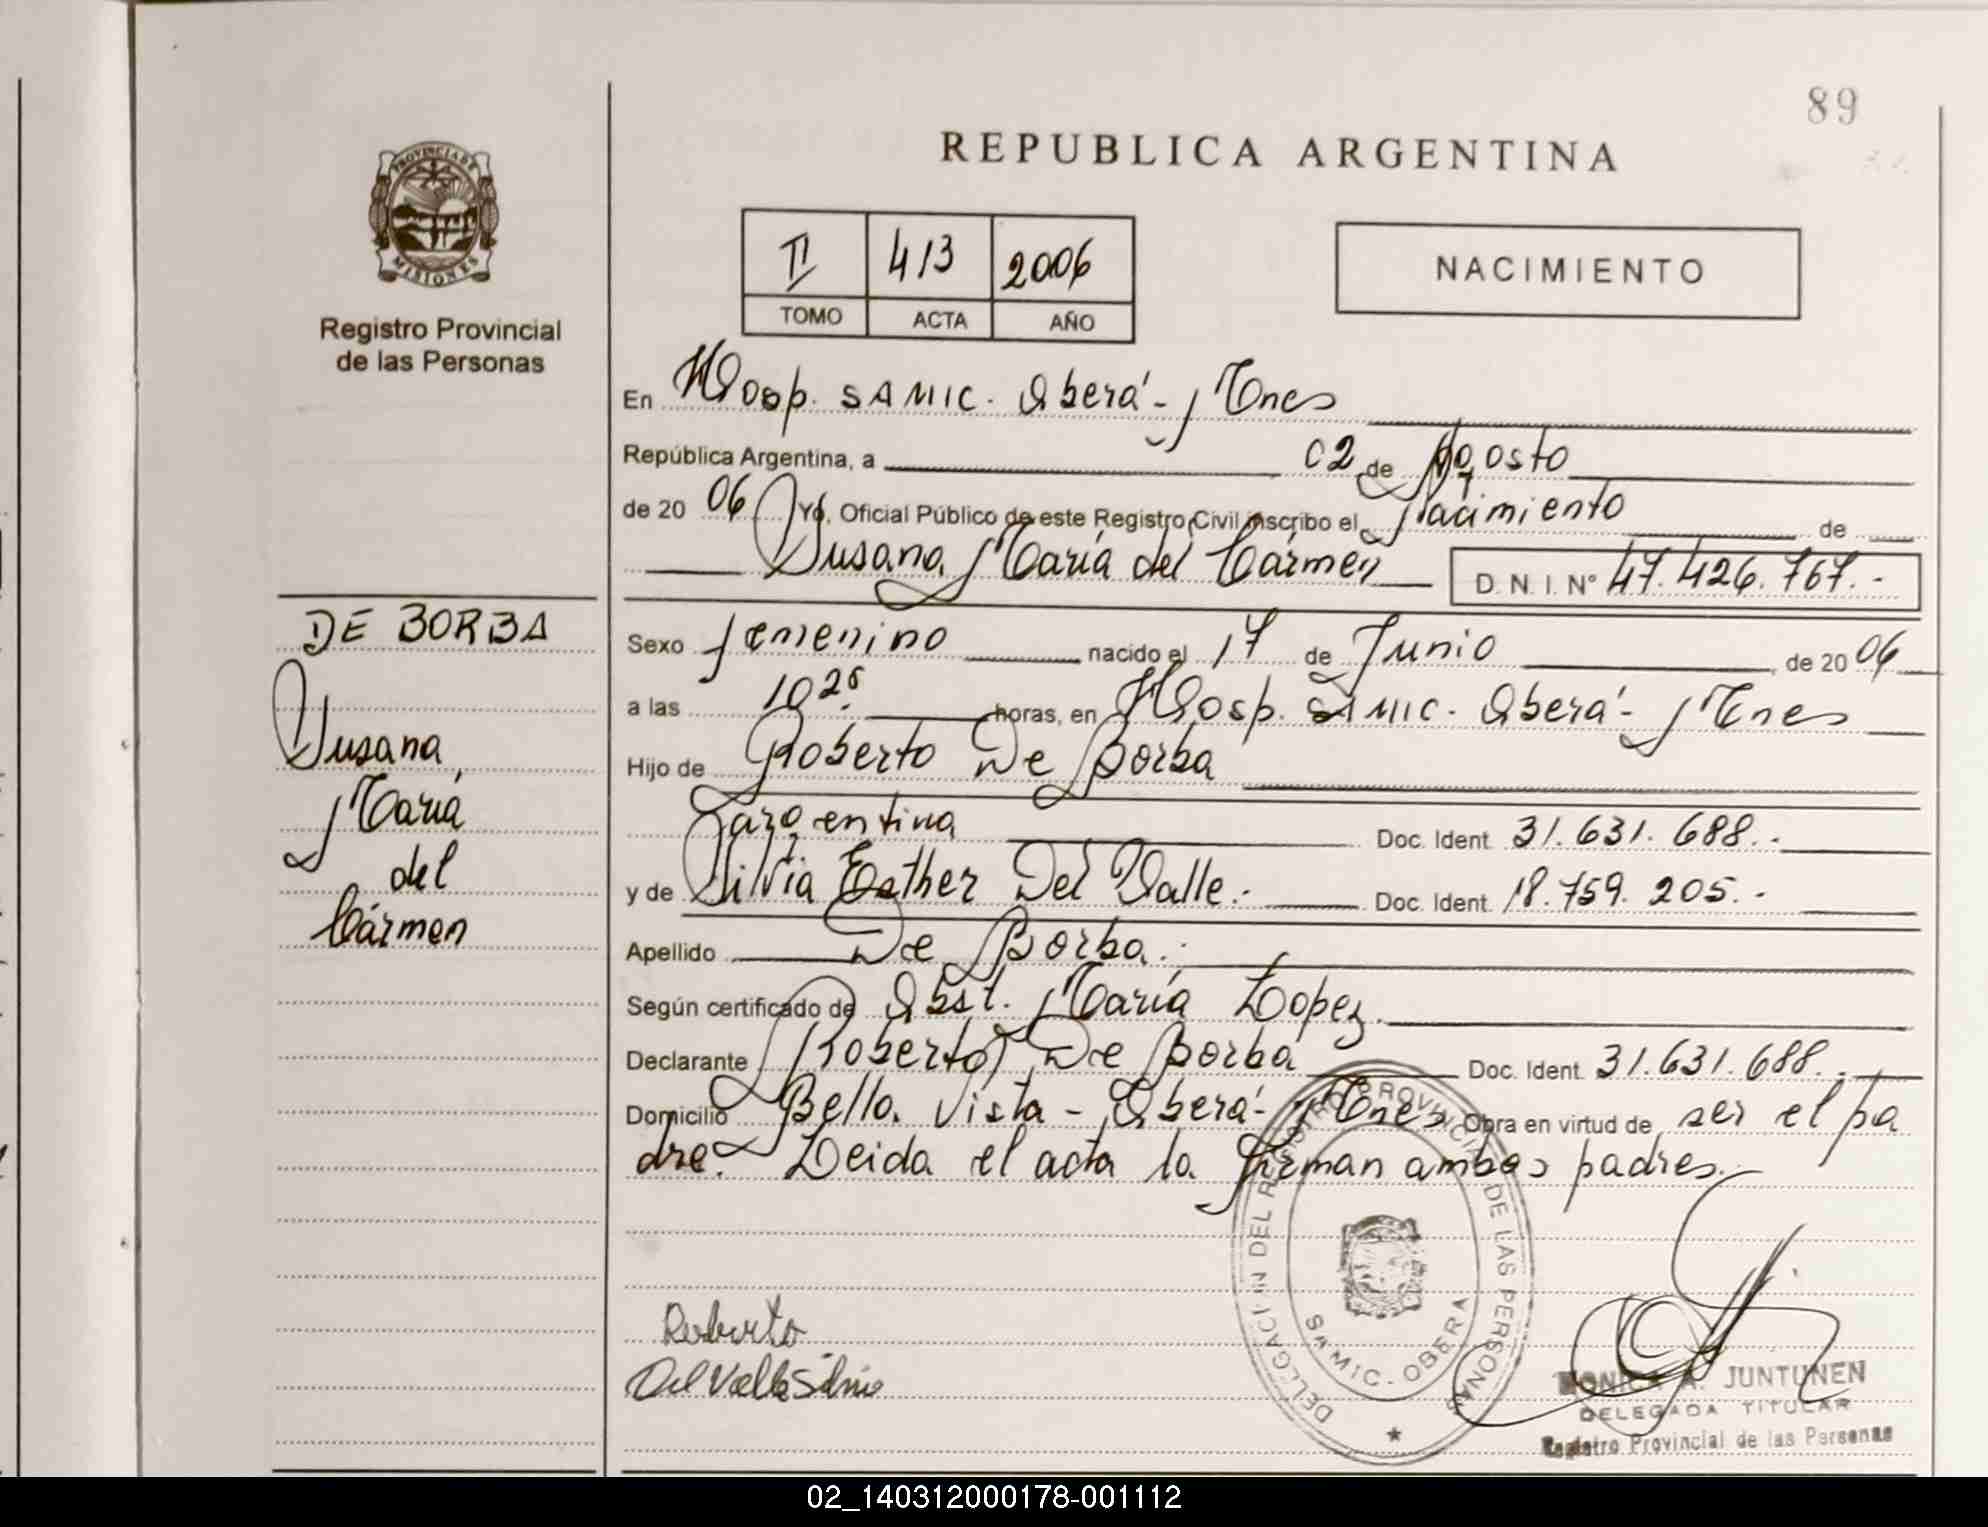 89
REPUBLICA ARGENTINA
PROVINCIA DE
MISIONES
Registro Provincial
de las Personas
II 413 2006
TOMO ACTA AÑO
NACIMIENTO
En Hosp. SAMIC. Oberá - Mnes
República Argentina, a 02 de Agosto
de 2006 Yo, Oficial Público de este Registro Civil inscribo el Nacimiento de
Susana María del Cármen D. N. I. N° 47.426.767.-
DE BORBA
Susana
María
del
Cármen
Sexo femenino nacido el 17 de Junio de 2006
a las horas, en Hosp. SAMIC. Oberá - Mnes
Hijo de Roberto De Borba
argentina Doc. Ident. 31.631.688.-
y de Silvia Esther Del Valle.- Doc. Ident. 18.759.205.-
Apellido De Borba.
Según certificado de Obst. María Lopez.
Declarante Roberto De Borba Doc. Ident. 31.631.688.-
Domicilio Bella Vista - Oberá - Mnes Obra en virtud de ser el pa
dre. Leida el acta la firman ambos padres.-
Roberto
Del Valle Silvia
DELEGACI N DEL REGISTRO PROVINCIAL DE LAS PERSONAS
SAMIC - OBERA
MONICA A. JUNTUNEN
DELEGADA TITULAR
Registro Provincial de las Personas
02_140312000178-001112